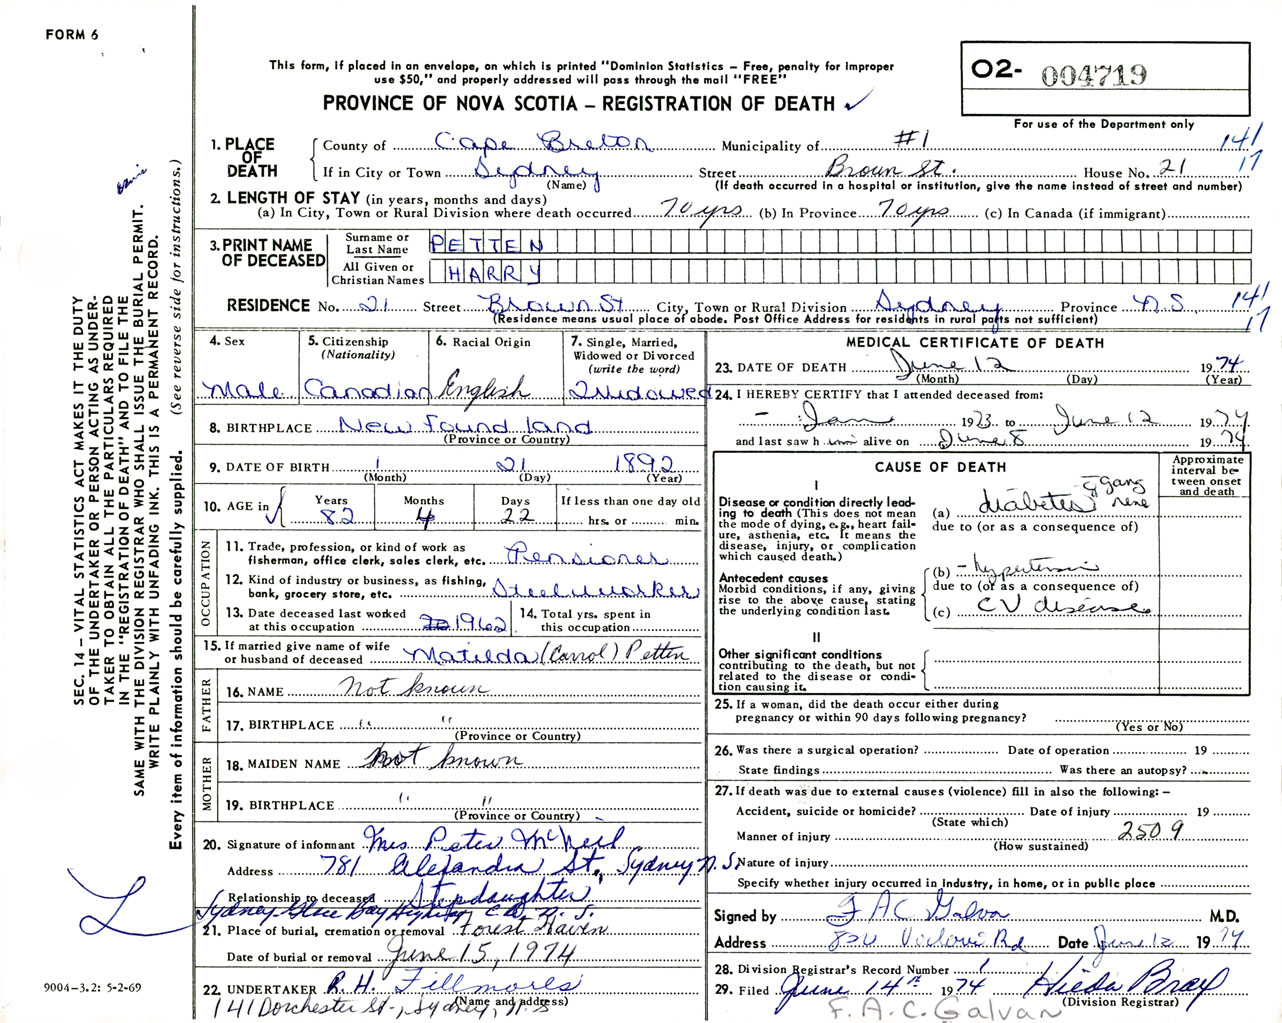 FORM 6
This form, if placed in an envelope, on which is printed "Dominion Statistics – Free, penalty for improper
use $50," and properly addressed will pass through the mail "FREE"
PROVINCE OF NOVA SCOTIA – REGISTRATION OF DEATH ✓
O2- 004719
For use of the Department only
1. PLACE OF DEATH
County of Cape Breton Municipality of #1 141
If in City or Town Sydney Street Brown St. House No. 21 17
(Name) (If death occurred in a hospital or institution, give the name instead of street and number)
2. LENGTH OF STAY (in years, months and days)
(a) In City, Town or Rural Division where death occurred 70 yrs (b) In Province 70 yrs (c) In Canada (if immigrant)
3. PRINT NAME OF DECEASED
Surname or Last Name PETTEN
All Given or Christian Names HARRY
RESIDENCE No. 21 Street Brown St City, Town or Rural Division Sydney Province N.S. 141
(Residence means usual place of abode. Post Office Address for residents in rural parts not sufficient) 17
4. Sex Male
5. Citizenship (Nationality) Canadian
6. Racial Origin English
7. Single, Married, Widowed or Divorced (write the word) Widowed
8. BIRTHPLACE New found land
(Province or Country)
9. DATE OF BIRTH 1 21 1892
(Month) (Day) (Year)
10. AGE in ✓ Years 82 Months 4 Days 22 If less than one day old hrs. or min.
OCCUPATION
11. Trade, profession, or kind of work as fisherman, office clerk, sales clerk, etc. Pensioner
12. Kind of industry or business, as fishing, bank, grocery store, etc. Steelworker
13. Date deceased last worked at this occupation 1962
14. Total yrs. spent in this occupation
15. If married give name of wife or husband of deceased Matilda (Carrol) Petten
FATHER
16. NAME Not known
17. BIRTHPLACE " "
(Province or Country)
MOTHER
18. MAIDEN NAME Not known
19. BIRTHPLACE " "
(Province or Country)
20. Signature of informant Mrs Peter McNeil
Address 781 Alexandra St., Sydney N.S.
Relationship to deceased Stepdaughter
Sydney-Glace Bay Highway C.B., N.S.
21. Place of burial, cremation or removal Forest Haven
Date of burial or removal June 15, 1974
22. UNDERTAKER R.H. Fillmores
(Name and address)
141 Dorchester St., Sydney, N.S
MEDICAL CERTIFICATE OF DEATH
23. DATE OF DEATH June 12 1974
(Month) (Day) (Year)
24. I HEREBY CERTIFY that I attended deceased from:
– Jan 1973 to June 12 1974
and last saw him alive on June 8 1974
CAUSE OF DEATH
Approximate interval between onset and death
I
Disease or condition directly leading to death (This does not mean the mode of dying, e.g., heart failure, asthenia, etc. It means the disease, injury, or complication which caused death.)
(a) diabetes gangrene
due to (or as a consequence of)
Antecedent causes
Morbid conditions, if any, giving rise to the above cause, stating the underlying condition last.
(b) – hypertension
due to (or as a consequence of)
(c) CV disease
II
Other significant conditions
contributing to the death, but not related to the disease or condition causing it.
25. If a woman, did the death occur either during pregnancy or within 90 days following pregnancy?
(Yes or No)
26. Was there a surgical operation? Date of operation 19
State findings Was there an autopsy?
27. If death was due to external causes (violence) fill in also the following: –
Accident, suicide or homicide? Date of injury 19
(State which)
Manner of injury 2509
(How sustained)
Nature of injury
Specify whether injury occurred in Industry, in home, or in public place
Signed by F A C Galvan M.D.
Address Rd Date June 12 1974
28. Division Registrar's Record Number 1
29. Filed June 14th 1974 Hilda Bray
(Division Registrar)
F. A. C. Galvan
SEC. 14 – VITAL STATISTICS ACT MAKES IT THE DUTY
OF THE UNDERTAKER OR PERSON ACTING AS UNDER-
TAKER TO OBTAIN ALL THE PARTICULARS REQUIRED
IN THE "REGISTRATION OF DEATH" AND TO FILE THE
SAME WITH THE DIVISION REGISTRAR WHO SHALL ISSUE THE BURIAL PERMIT.
WRITE PLAINLY WITH UNFADING INK. THIS IS A PERMANENT RECORD.
Every item of information should be carefully supplied. (See reverse side for instructions.)
9004-3.2: 5-2-69